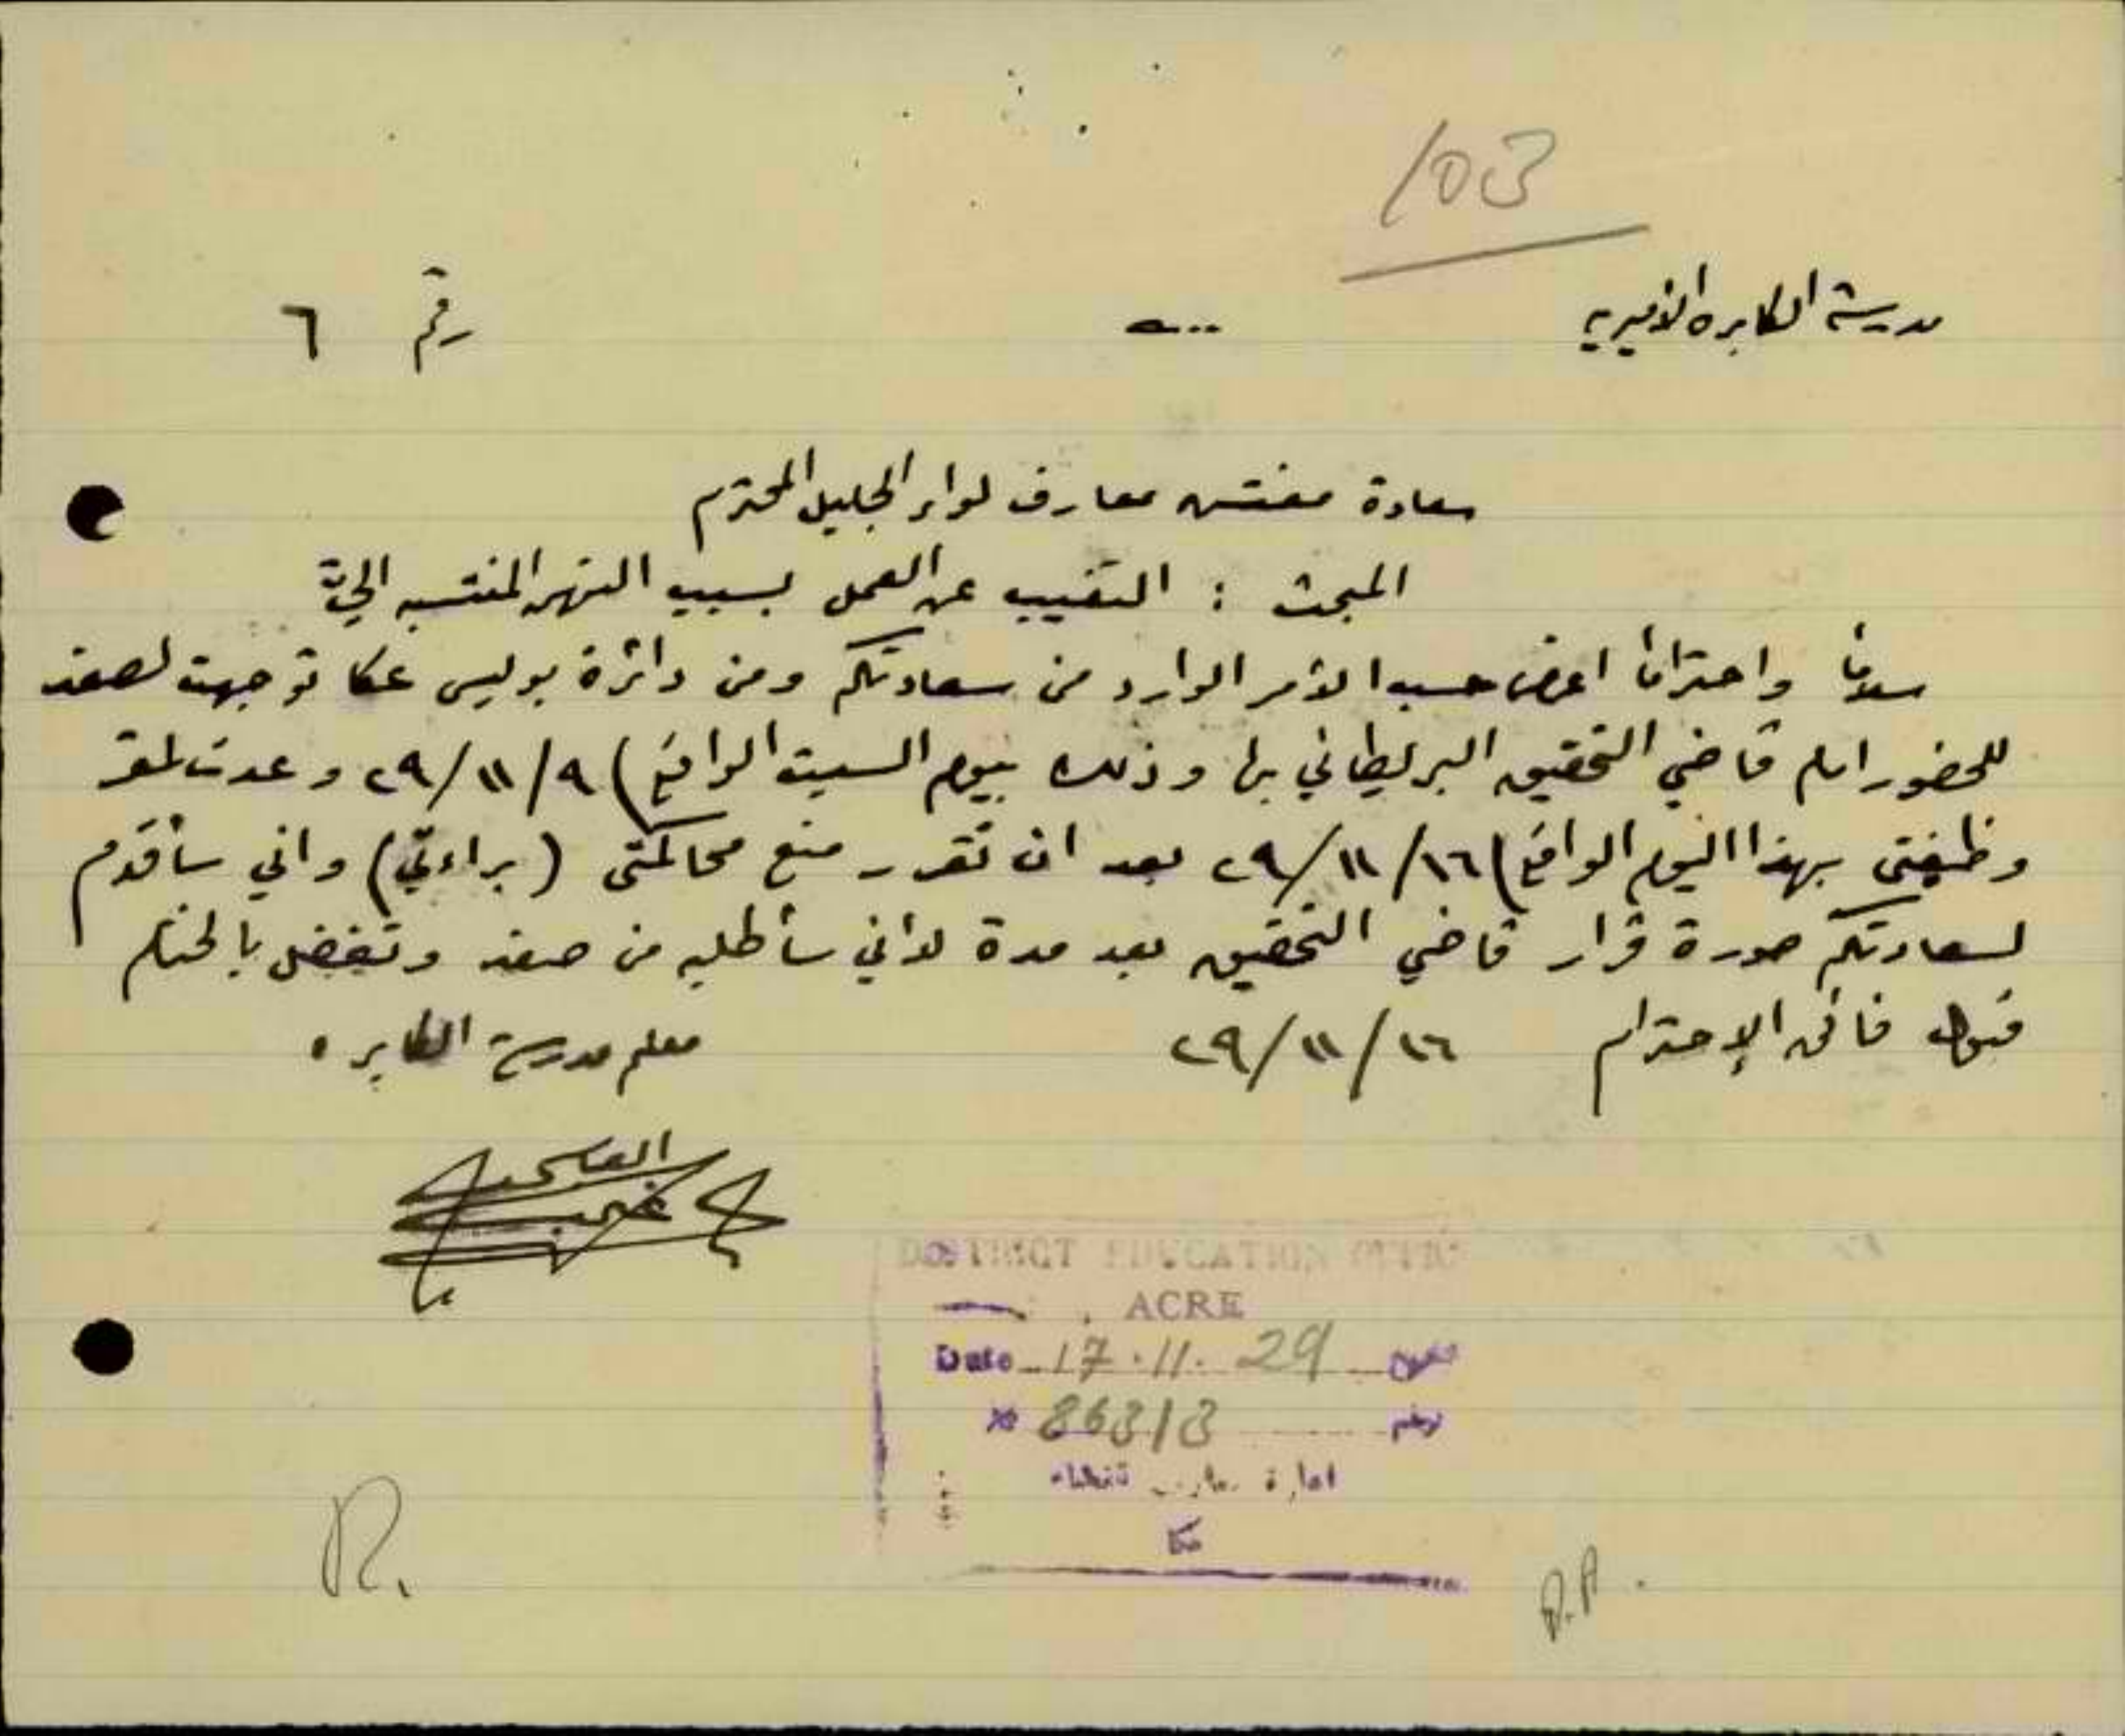 103
مدرسة الكابره الأميرية
رقم ٦
سعادة مفتش معارف لواء الجليل المحترم
المبحث : التغيب عن العمل بسبب التهم المنتسبه اليّ
سلاماً واحتراماً اعرض حسب الأمر الوارد من سعادتكم ومن دائرة بوليس عكا توجهت لصفد
للحضور امام قاضي التحقيق البريطاني بها وذلك بيوم السبت الواقع) ٢٩/١١/٩ وعدت لمقر
وظيفتي بهذا اليوم الواقع) ٢٩/١١/١٦ بعد ان تقرر منع محاكمتي (براءتي) واني سأقدم
لسعادتكم صورة قرار قاضي التحقيق بعد مدة لأني سأطلبه من صفد وتفضل بالختام
قبول فائق الإحترام ٢٩/١١/١٦ معلم مدرسة الكابره
DISTRICT EDUCATION OFFICE
ACRE
Date 17.11.29 التاريخ
No 863/3 نومرو
ادارة معارف قضاء
عكا
R.